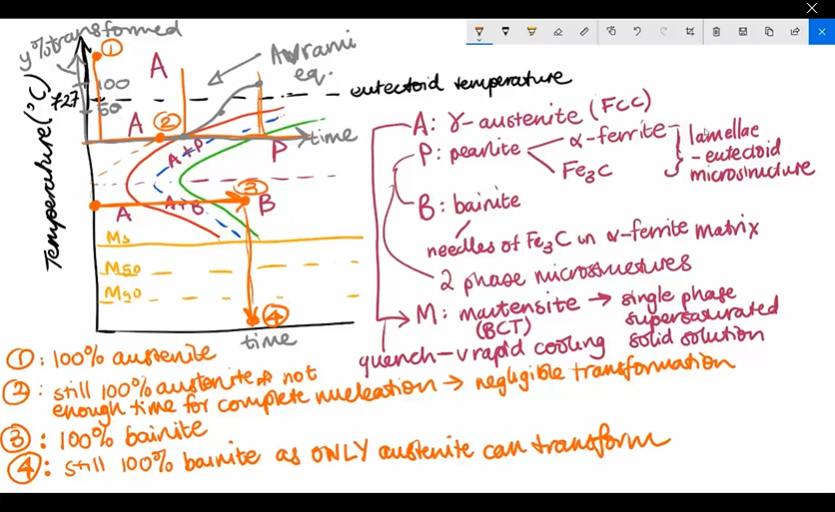 y%transformed
①
A
Avrami
eq.
100
727
50
eutectoid temperature
A
②
time
A+P
P
Temperature (°C)
③
A
A+B
B
Ms
M50
M90
④
time
A: γ-austenite (FCC)
P: pearlite
α-ferrite
Fe3C
lamellae
- eutectoid
microstructure
B: bainite
needles of Fe3C in α-ferrite matrix
2 phase microstructures
M: martensite → single phase
(BCT)
supersaturated
solid solution
quench - v rapid cooling
①: 100% austenite
②: still 100% austenite not
enough time for complete nucleation → negligible transformation
③: 100% bainite
④: still 100% bainite as ONLY austenite can transform